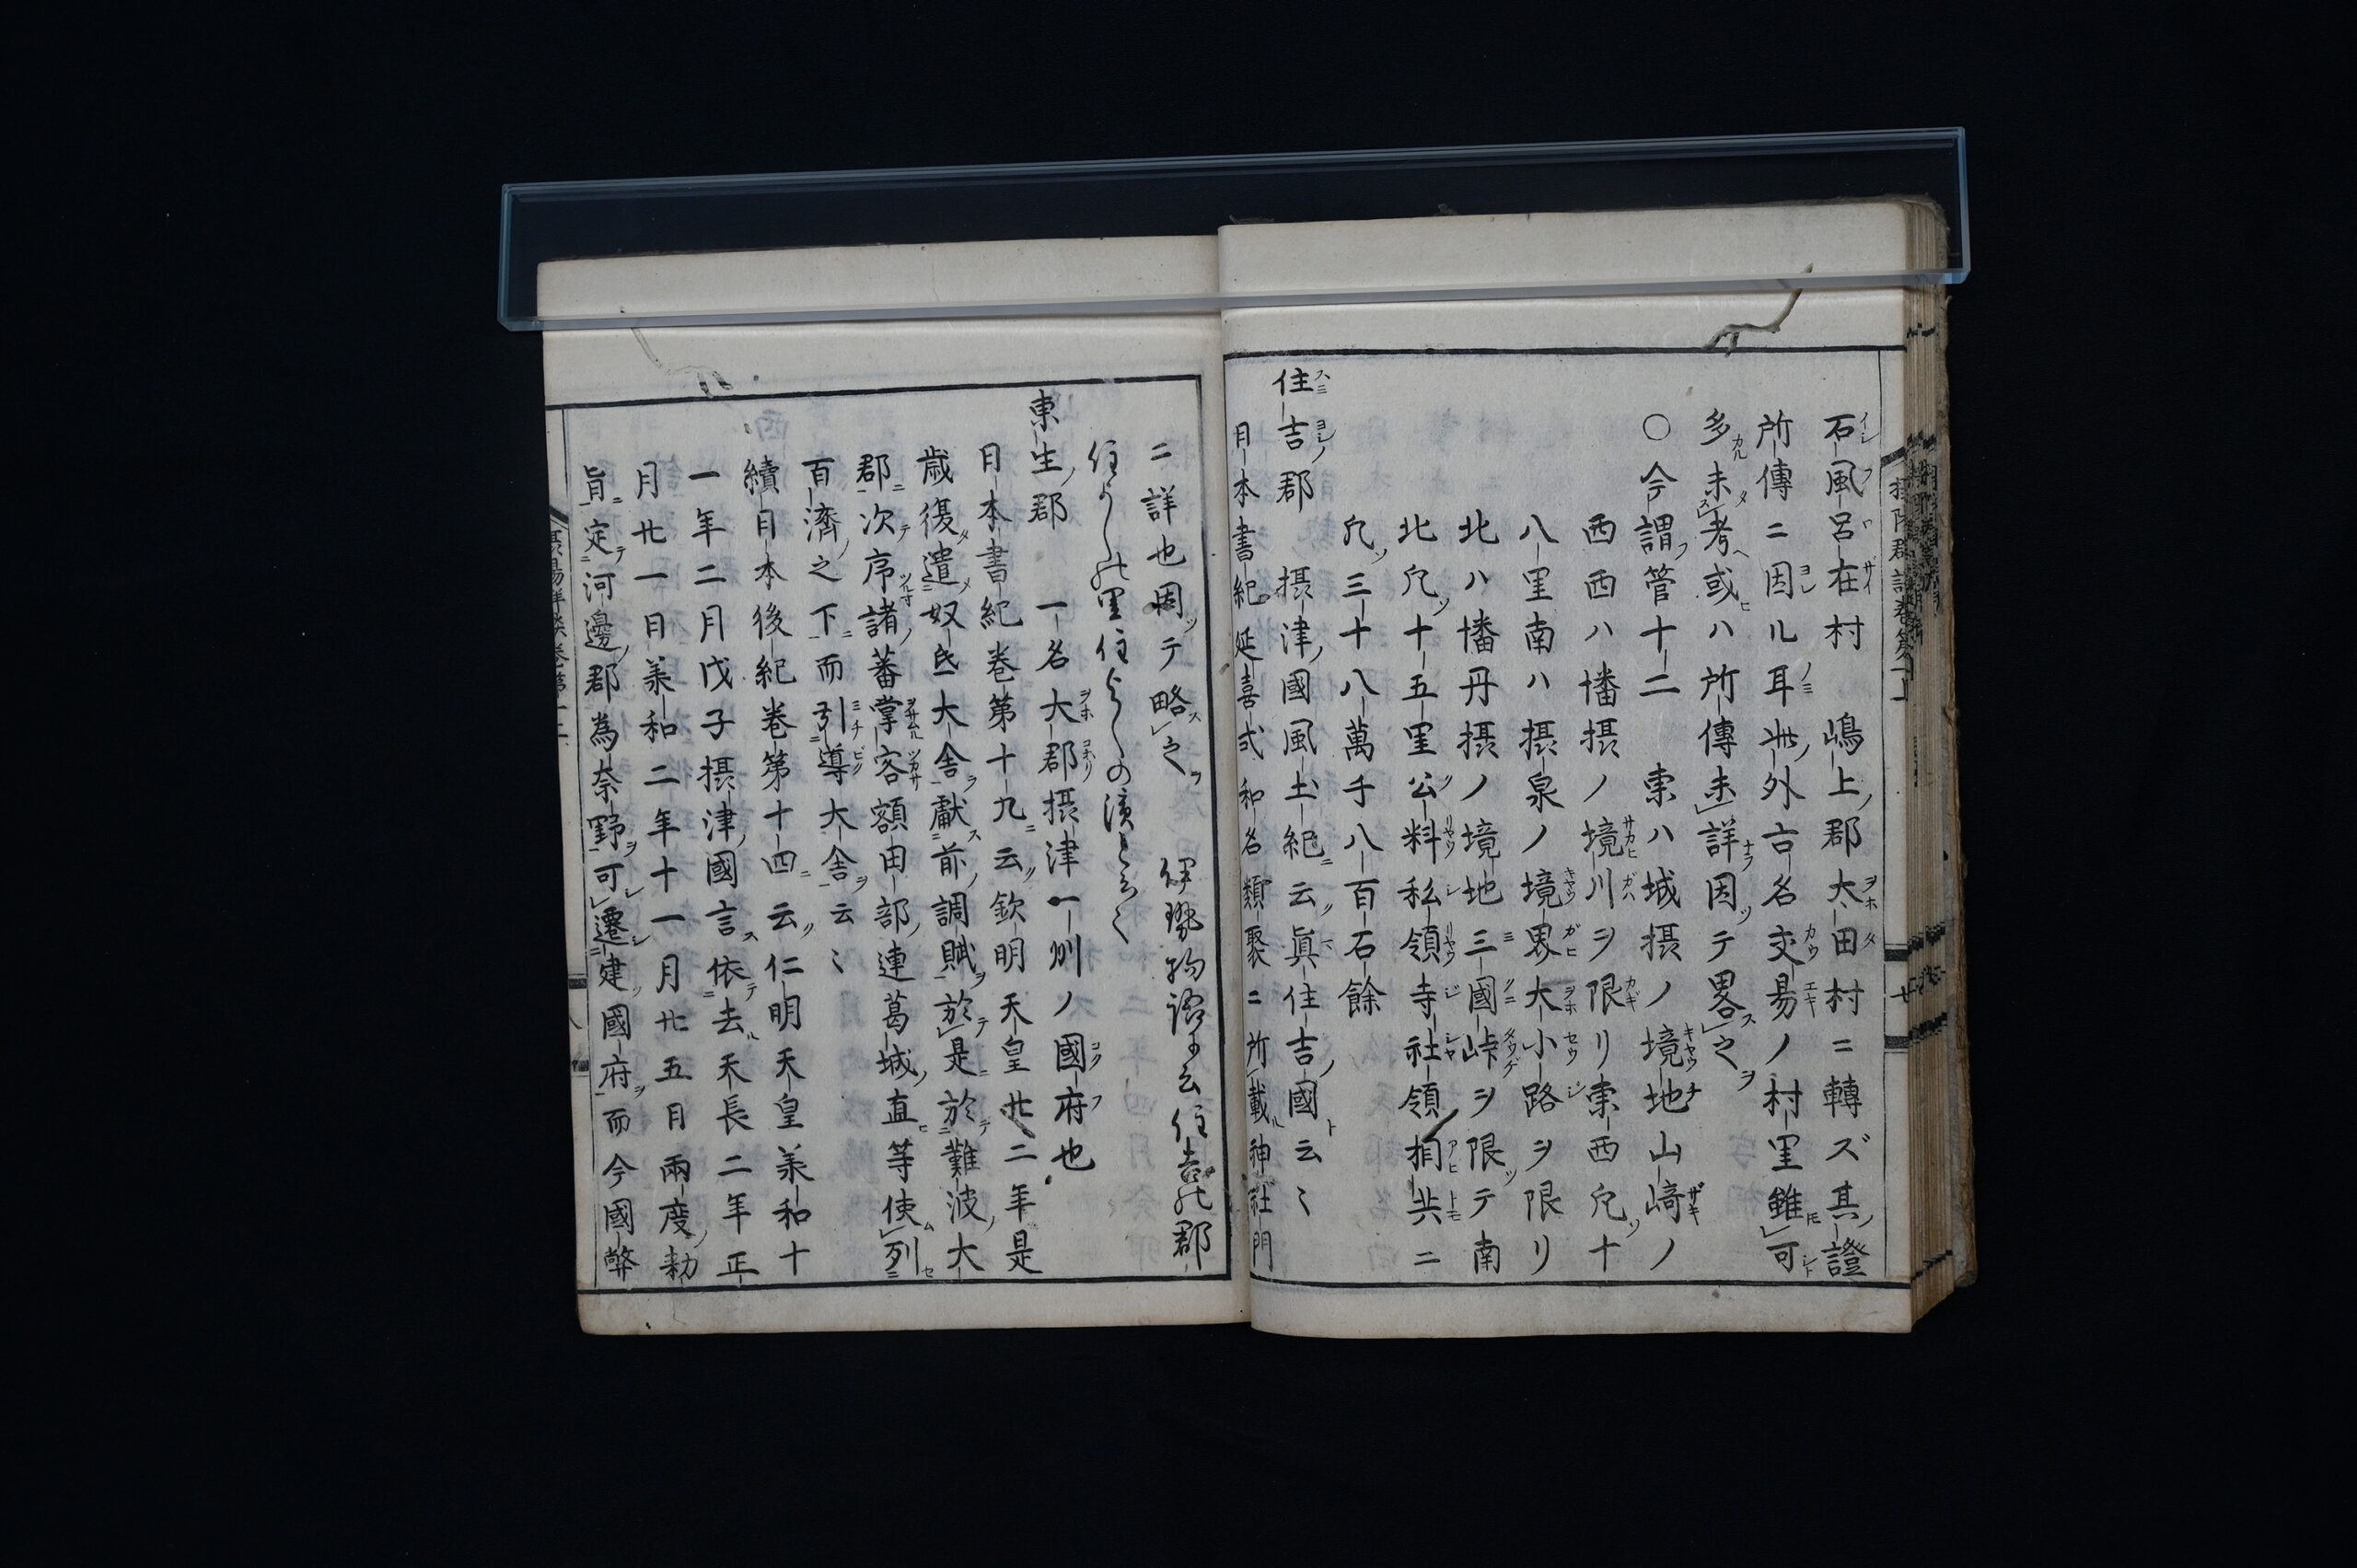 石風呂在村　嶋上ノ郡太田村ニ轉ズ其ノ證
所傳ニ因ル耳此ノ外古名交易ノ村里雖可
多未考或ハ所傳未詳因テ畧之
○今謂管十二　東ハ城摂ノ境地山﨑ノ
西西ハ播摂ノ境川ヲ限リ東西凡十
八里南ハ摂泉ノ境界大小路ヲ限リ
北ハ播丹摂ノ境地三國峠ヲ限テ南
北凡十五里公料私領寺社領相共ニ
凡三十八萬千八百石餘
住吉郡　摂津ノ國風土紀ニ云眞住吉ノ國云〻
日本書紀延喜式和名類聚ニ所載神社門
ニ詳也因テ略之　伊勢物語に云住吉の郡
住よしの里住よしの濱と云〻
東生ノ郡　一名大郡摂津一州ノ國府也
日本書紀巻第十九ニ云欽明天皇廿二年是
歳復遣奴氐大舎獻前調賦於是於難波大
郡次序諸蕃掌客額田部連葛城直等使列
百濟之下而引導大舎云〻
續日本後紀巻第十四ニ云仁明天皇羕和十
一年二月戊子摂津國言依去天長二年正
月廿一日羕和二年十一月廿五日兩度勅
旨定河邊郡為奈野可遷建國府而今國弊